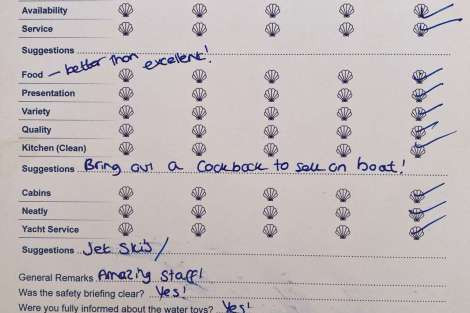 Availability
Service
Suggestions
Food - better than excellent!
Presentation
Variety
Quality
Kitchen (Clean)
Suggestions Bring out a Cookbook to sell on boat!
Cabins
Neatly
Yacht Service
Suggestions Jet Skis
General Remarks Amazing Staff!
Was the safety briefing clear? Yes!
Were you fully informed about the water toys? Yes!